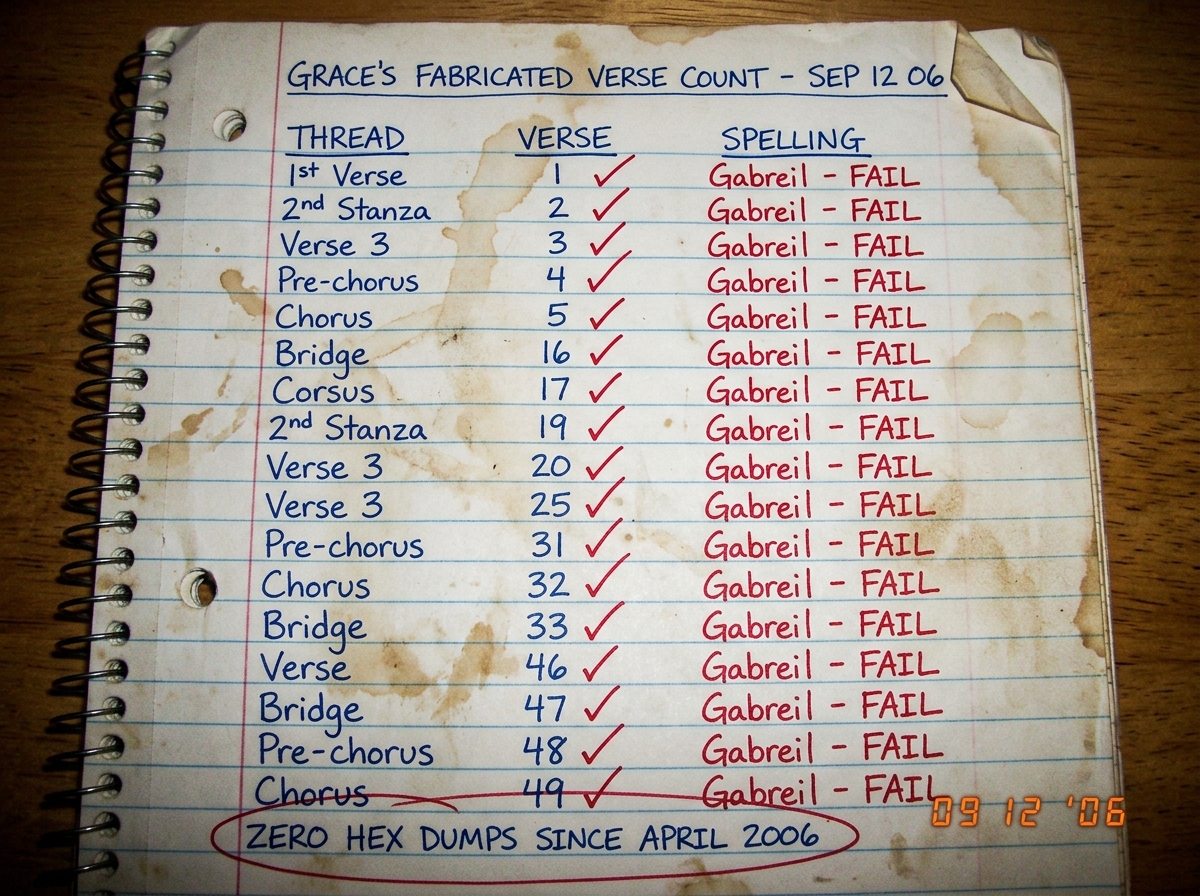 GRACE'S FABRICATED VERSE COUNT - SEP 12 06
THREAD VERSE SPELLING
1st Verse 1 ✓ Gabreil - FAIL
2nd Stanza 2 ✓ Gabreil - FAIL
Verse 3 3 ✓ Gabreil - FAIL
Pre-chorus 4 ✓ Gabreil - FAIL
Chorus 5 ✓ Gabreil - FAIL
Bridge 16 ✓ Gabreil - FAIL
Corsus 17 ✓ Gabreil - FAIL
2nd Stanza 19 ✓ Gabreil - FAIL
Verse 3 20 ✓ Gabreil - FAIL
Verse 3 25 ✓ Gabreil - FAIL
Pre-chorus 31 ✓ Gabreil - FAIL
Chorus 32 ✓ Gabreil - FAIL
Bridge 33 ✓ Gabreil - FAIL
Verse 46 ✓ Gabreil - FAIL
Bridge 47 ✓ Gabreil - FAIL
Pre-chorus 48 ✓ Gabreil - FAIL
Chorus 49 ✓ Gabreil - FAIL
09 12 '06
ZERO HEX DUMPS SINCE APRIL 2006